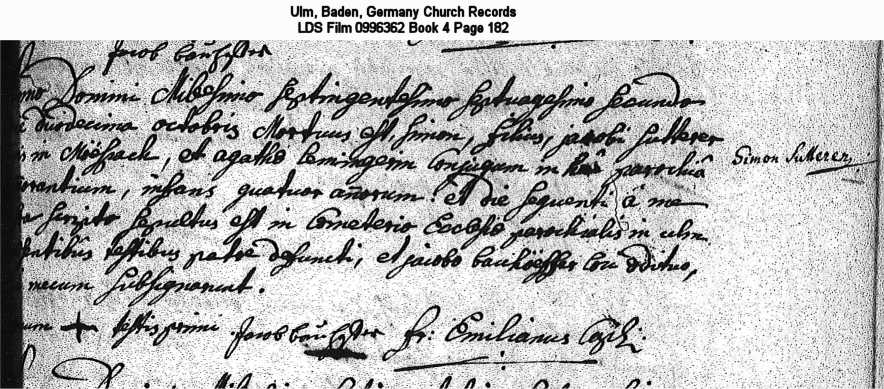 Ulm, Baden, Germany Church Records
LDS Film 0996362 Book 4 Page 182
Jacob
Domini Millesimo septingentesimo septuagesimo secundo
duodecima octobris Mortuus est, simon, filius, jacobi sutterer
in Mössbach, et agathæ conjugum in hac parochiâ
infans quatuor añorum. et die sequenti à me
scripto sepultus est in Cœmeterio Ecclesiæ parochialis in ulm
testibus patre defuncti, et jacobo ædituo,
mecum subsignarunt.
Simon Sutterer
+ testis primi Jacob fr: Emilianus